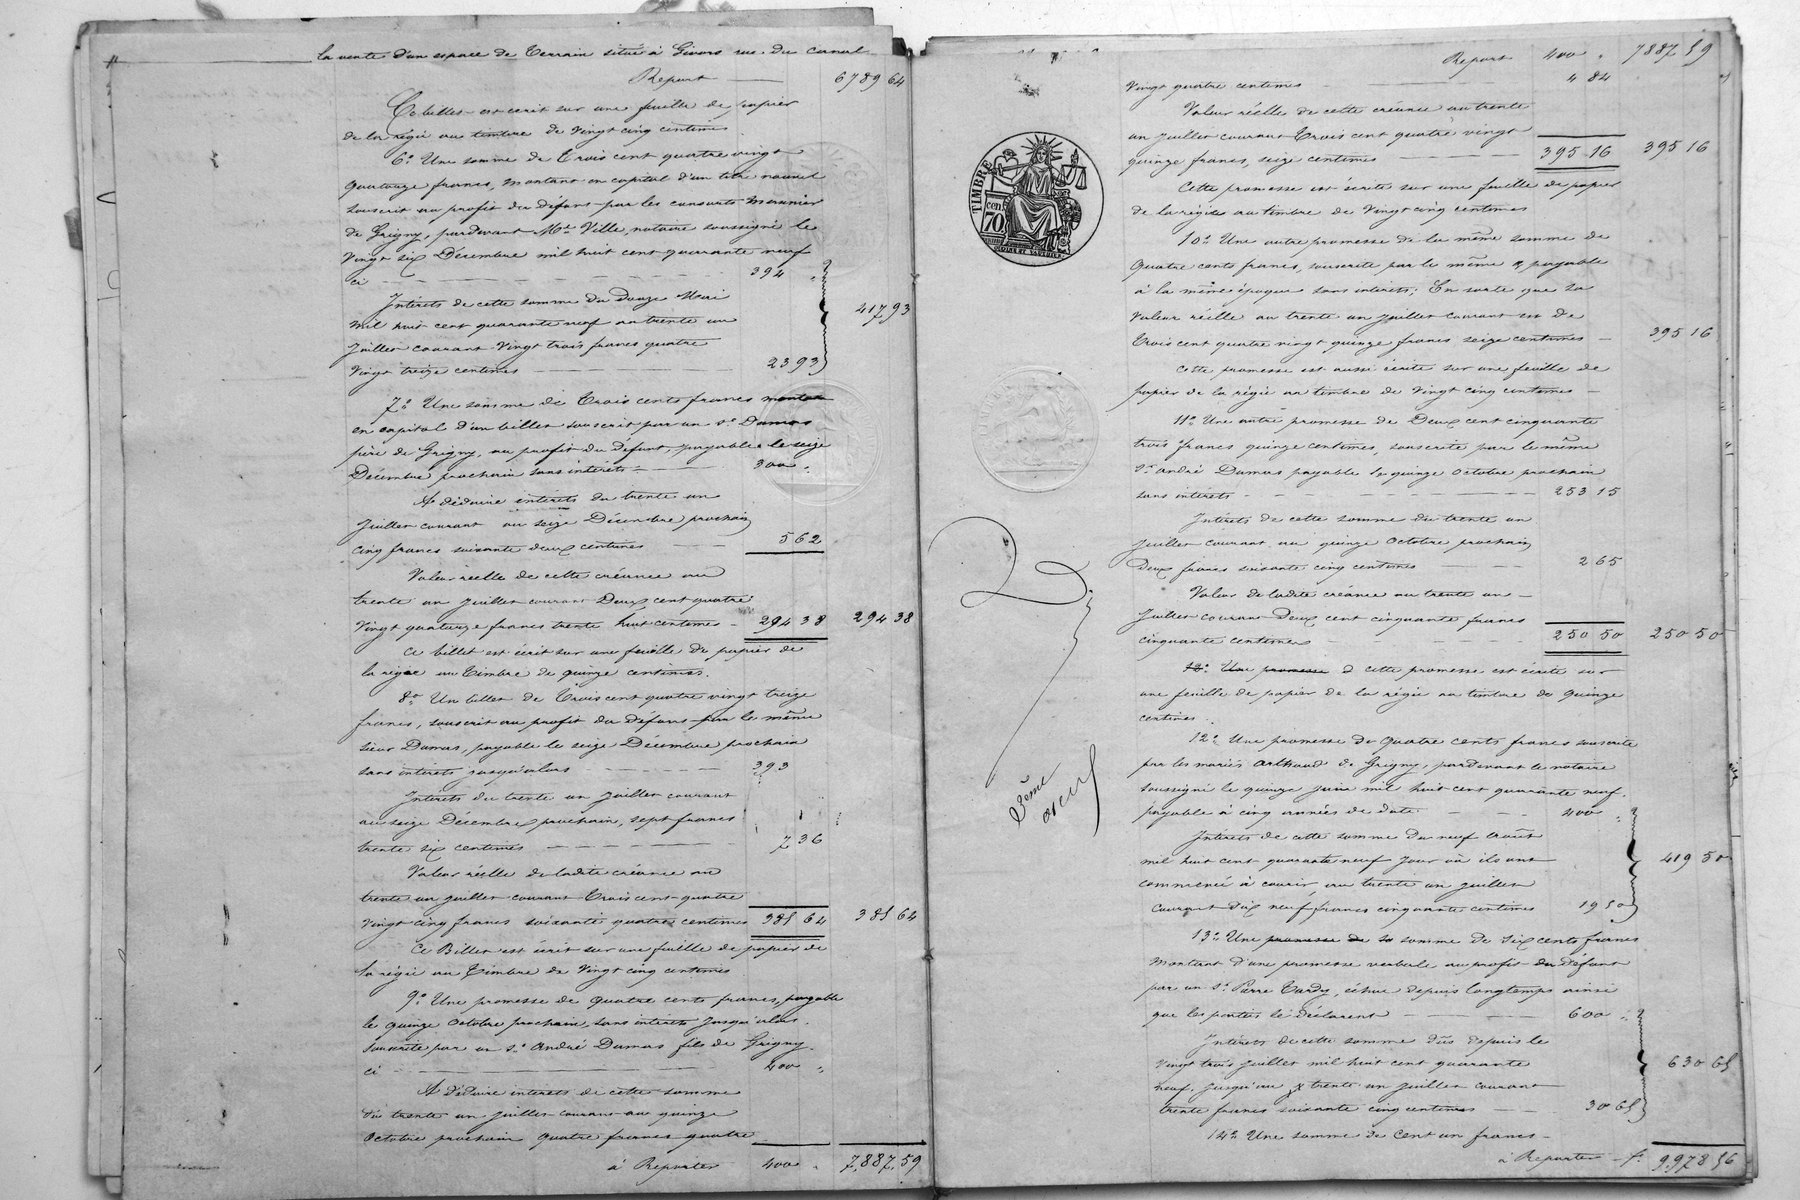 la vente d'un espace de terrain situé à Givors rue du canal
Report 6789 64
Ce billet est écrit sur une feuille de papier
de la régie au timbre de vingt cinq centimes
6° Une somme de Trois cent quatre vingt
quatorze francs, montant en capital d'un titre nouvel
souscrit au profit du défunt par les consorts
de Grigny, pardevant Me Ville, notaire soussigné le
vingt six Décembre mil huit cent quarante neuf
ci 394 "
Intérêts de cette somme du Douze Mai
mil huit cent quarante neuf au trente un
Juillet courant vingt trois francs quatre
vingt treize centimes 23 93
417 93
7° Une somme de Trois cents francs montant
en capital d'un billet souscrit par un Sr Dumas
père de Grigny, au profit du Défunt, payable le seize
Décembre prochain sans intérêts 300 "
A déduire intérêts du trente un
Juillet courant au seize Décembre prochain
cinq francs soixante deux centimes 5 62
Valeur réelle de cette créance au
trente un Juillet courant Deux cent quatre
vingt quatorze francs trente huit centimes 294 38 294 38
Ce billet est écrit sur une feuille de papier de
la régie au Timbre de quinze centimes.
8° Un billet de Trois cent quatre vingt treize
francs, souscrit au profit du défunt par le même
sieur Dumas, payable le seize Décembre prochain
sans intérêts jusqu'alors 393
Intérêts du trente un Juillet courant
au seize Décembre prochain, sept francs
trente six centimes 7 36
Valeur réelle de ladite créance au
trente un juillet courant Trois cent quatre
vingt cinq francs soixante quatre centimes 385 64 385 64
Ce Billet est écrit sur une feuille de papier de
la régie au Timbre de vingt cinq centimes
9° Une promesse de quatre cents francs, payable
le quinze Octobre prochain, sans intérêts jusqu'alors,
souscrite par un Sr André Dumas fils de Grigny
ci 400 "
A Déduire intérêts de cette somme
du trente un juillet courant au quinze
Octobre prochain quatre francs quatre
à Reporter 400 " 7,887,59
Report 400 " 7887 59
vingt quatre centimes 4 84
Valeur réelle de cette créance au trente
un Juillet courant Trois cent quatre vingt
quinze francs, seize centimes 395 16 395 16
TIMBRE
70 cent
Cette promesse est écrite sur une feuille de papier
de la régie au timbre de vingt cinq centimes
10° Une autre promesse de la même somme de
quatre cents francs, souscrite par le même & payable
à la même époque sans intérêts; En sorte que sa
valeur réelle au trente un juillet courant est de
Trois cent quatre vingt quinze francs seize centimes 395 16
cette promesse est aussi écrite sur une feuille de
papier de la régie au timbre de vingt cinq centimes
11° Une autre promesse de Deux cent cinquante
trois francs quinze centimes, souscrite par le même
Sr André Dumas payable le quinze Octobre prochain
sans intérêts 253 15
Intérêts de cette somme du trente un
Juillet courant au quinze Octobre prochain
Deux francs soixante cinq centimes 2 65
Valeur de ladite créance au trente un
Juillet courant Deux cent cinquante francs
cinquante centimes 250 50 250 50
12° Une promesse cette promesse est écrite sur
une feuille de papier de la régie au timbre de quinze
centimes.
12° Une promesse de quatre cents francs souscrite
par les mariés Arthaud de Grigny, pardevant le notaire
soussigné le quinze juin mil huit cent quarante neuf,
payable à cinq années de date 400 "
Intérêts de cette somme du neuf août
mil huit cent quarante neuf jour où ils ont
commencé à courir, au trente un juillet
courant dix neuf francs cinquante centimes 19 50
419 50
13° Une promesse de somme de six cents francs
montant d'une promesse verbale au profit du défunt
par un Sr Pierre Tardy, échue depuis longtemps ainsi
que les parties le déclarent 600 "
Intérêts de cette somme dûs depuis le
vingt trois juillet mil huit cent quarante
neuf, jusqu'au trente un juillet courant
trente francs soixante cinq centimes 30 65
630 65
14° Une somme de Cent un francs
à Reporter f. 9,978 56